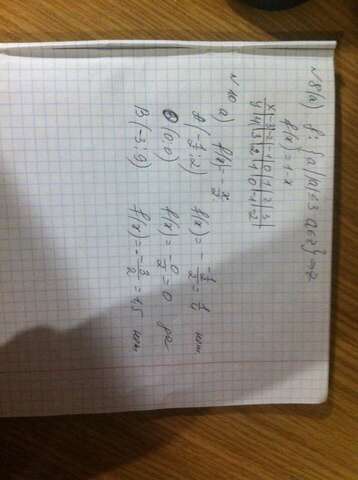 N8(a) f: {a||a|≤3 a∈z}→z
f(x)=1-x
x|-3|-2|-1|0|1|2|3|
y|4|3|2|1|0|-1|-2
N10 a) f(x)=-x/2
A(-1/2;2) f(x)=-(-1/2)/2=1/4 нет
O(0;0) f(x)=-0/2=0 да
B(-3;9) f(x)=--3/2=1,5 нет